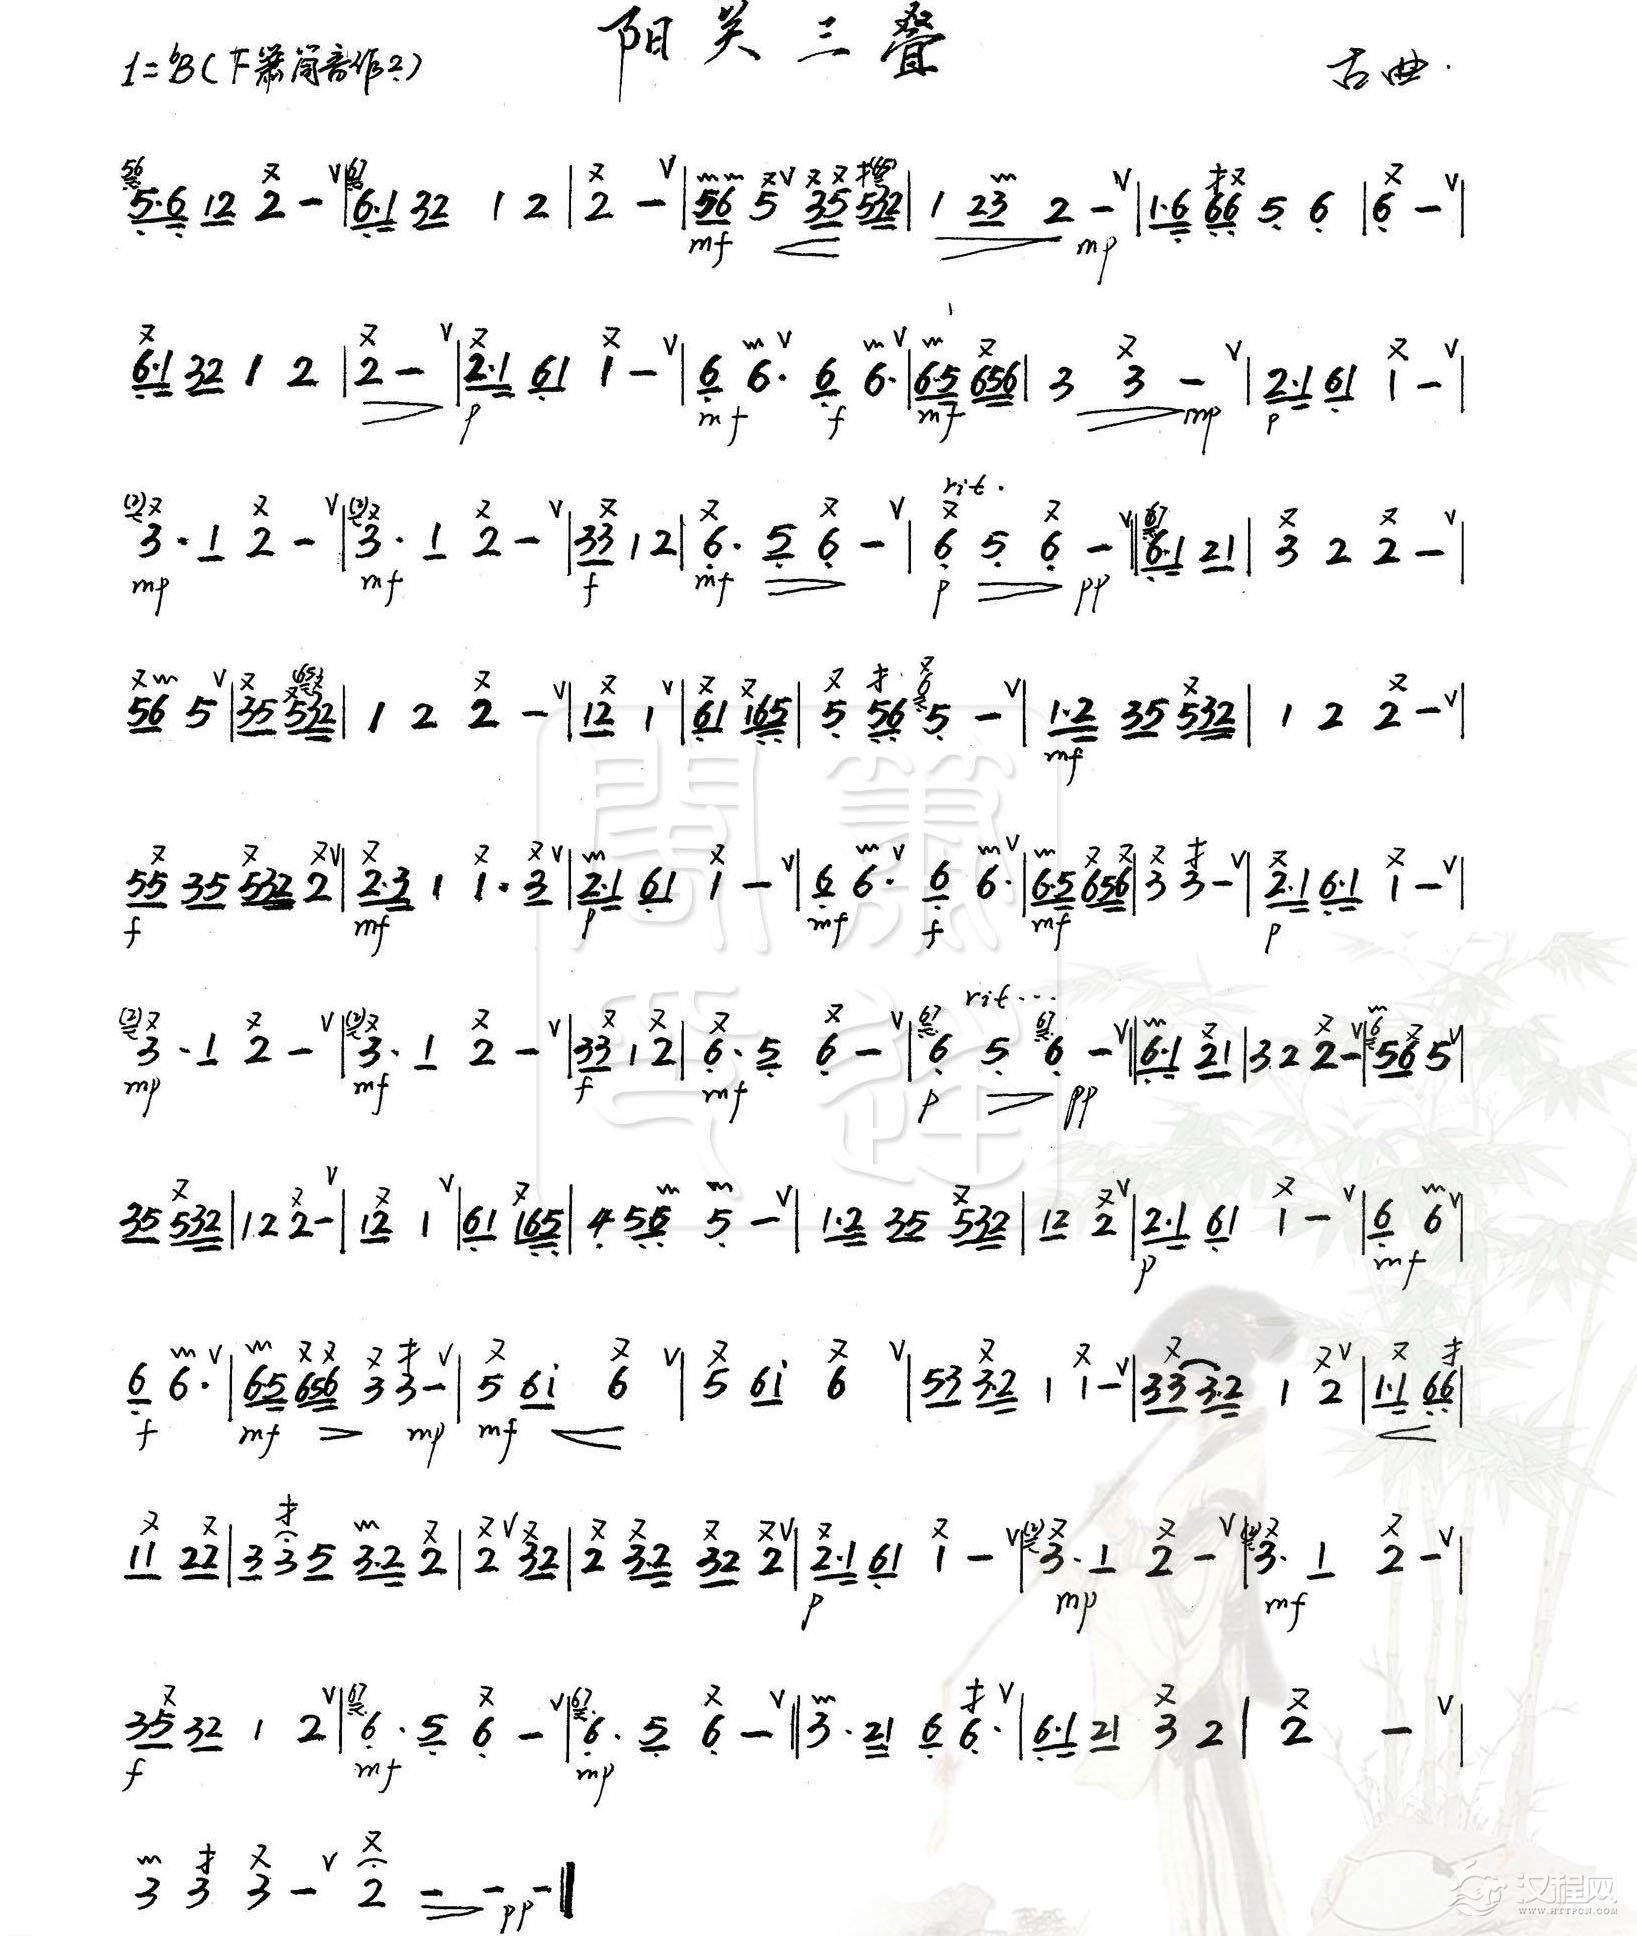 阳关三叠
1=ᵇB(下箫筒音作2)
古曲.
5·6 12 2 - ∨ | 6·1 32 1 2 | 2 - ∨ | 56 5 ∨ 35 532 | 1 23 2 - ∨ | 1·6 66 5 6 | 6 - ∨ |
mf mp
6·1 32 1 2 | 2 - ∨ | 2·1 61 1 - ∨ | 6 6· ∨ 6 6· ∨ | 6·5 656 | 3 3 - ∨ | 2·1 61 1 - ∨ |
p mf f mf mp p
rit.
3·1 2 - ∨ | 3·1 2 - ∨ | 33 12 | 6·5 6 - ∨ | 6 5 6 - ∨ || 6·1 21 | 3 2 2 - ∨ |
mp mf f mf p pp
56 5 ∨ | 35 532 | 1 2 2 - ∨ | 12 1 ∨ | 61 165 | 5 56 5 - ∨ | 1·2 35 532 | 1 2 2 - ∨ |
mf
55 35 532 2 ∨ | 2·3 1 1·3 ∨ | 2·1 61 1 - ∨ | 6 6· ∨ 6 6· ∨ | 6·5 656 | 3 3 - ∨ | 2·1 6·1 1 - ∨ |
f mf p mf f mf p
rit...
3·1 2 - ∨ | 3·1 2 - ∨ | 33 12 | 6·5 6 - ∨ | 6 5 6 - ∨ || 6·1 21 | 3 2 2 - ∨ | 56 5 ∨ |
mp mf f mf p pp
35 532 | 1 2 2 - ∨ | 12 1 ∨ | 61 165 | 4 56 5 - ∨ | 1·2 35 532 | 12 2 ∨ | 2·1 61 1 - ∨ | 6 6 ∨ |
p mf
6 6· ∨ | 6·5 656 3 3 - ∨ | 5 6i 6 ∨ | 5 6i 6 ∨ | 53 3·2 1 1 - ∨ | 33 3·2 1 2 ∨ | 1·1 66 |
f mf mp mf
11 22 | 3 3 5 3·2 2 | 2 ∨ 32 | 2 3·2 32 2 ∨ | 2·1 61 1 - ∨ | 3·1 2 - ∨ | 3·1 2 - ∨ |
p mp mf
35 32 1 2 ∨ | 6·5 6 - ∨ | 6·5 6 - ∨ || 3·21 6 6· ∨ | 6·1 21 3 2 | 2 - ∨ |
f mf mp
3 3 3 - ∨ 2 - - - ‖
pp
汉程网
WWW.HTTPCN.COM